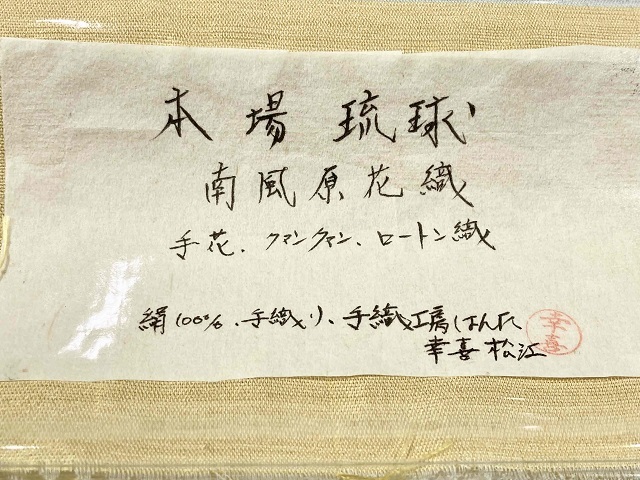 本場琉球
南風原花織
手花、クマンクマン、ロートン織
絹100%、手織り、手織工房しはんた
幸喜松江
幸喜